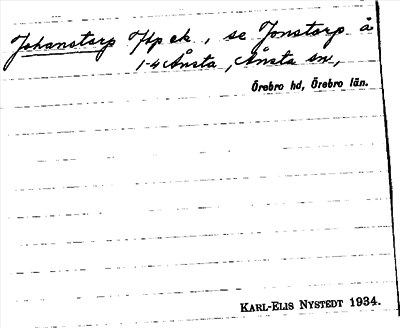 Johanstorp Hp ek, se Jonstorp å
1-4 Ånsta, Ånsta sn,
Örebro hd, Örebro län.
KARL-ELIS NYSTEDT 1934.